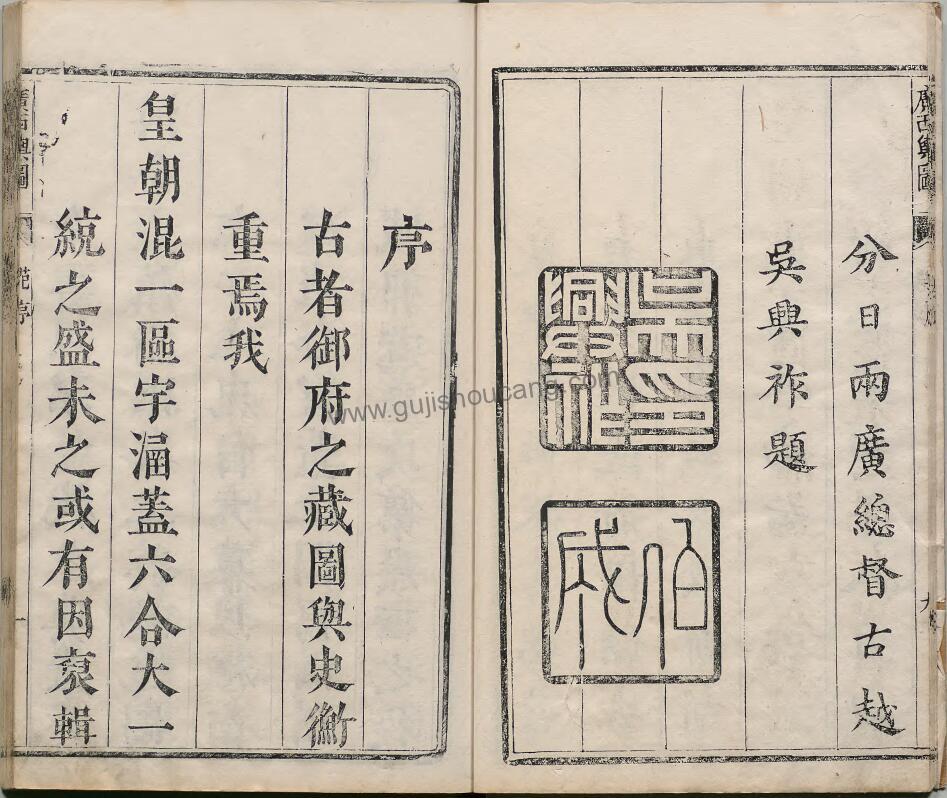 廣西輿圖
分日兩廣總督古越
吳興祚題
伯成
序
古者御府之藏圖與史衡
重焉我
皇朝混一區宇涵蓋六合大一
統之盛未之或有因裒輯
廣西輿圖
序
一
www.gujishoucang.com